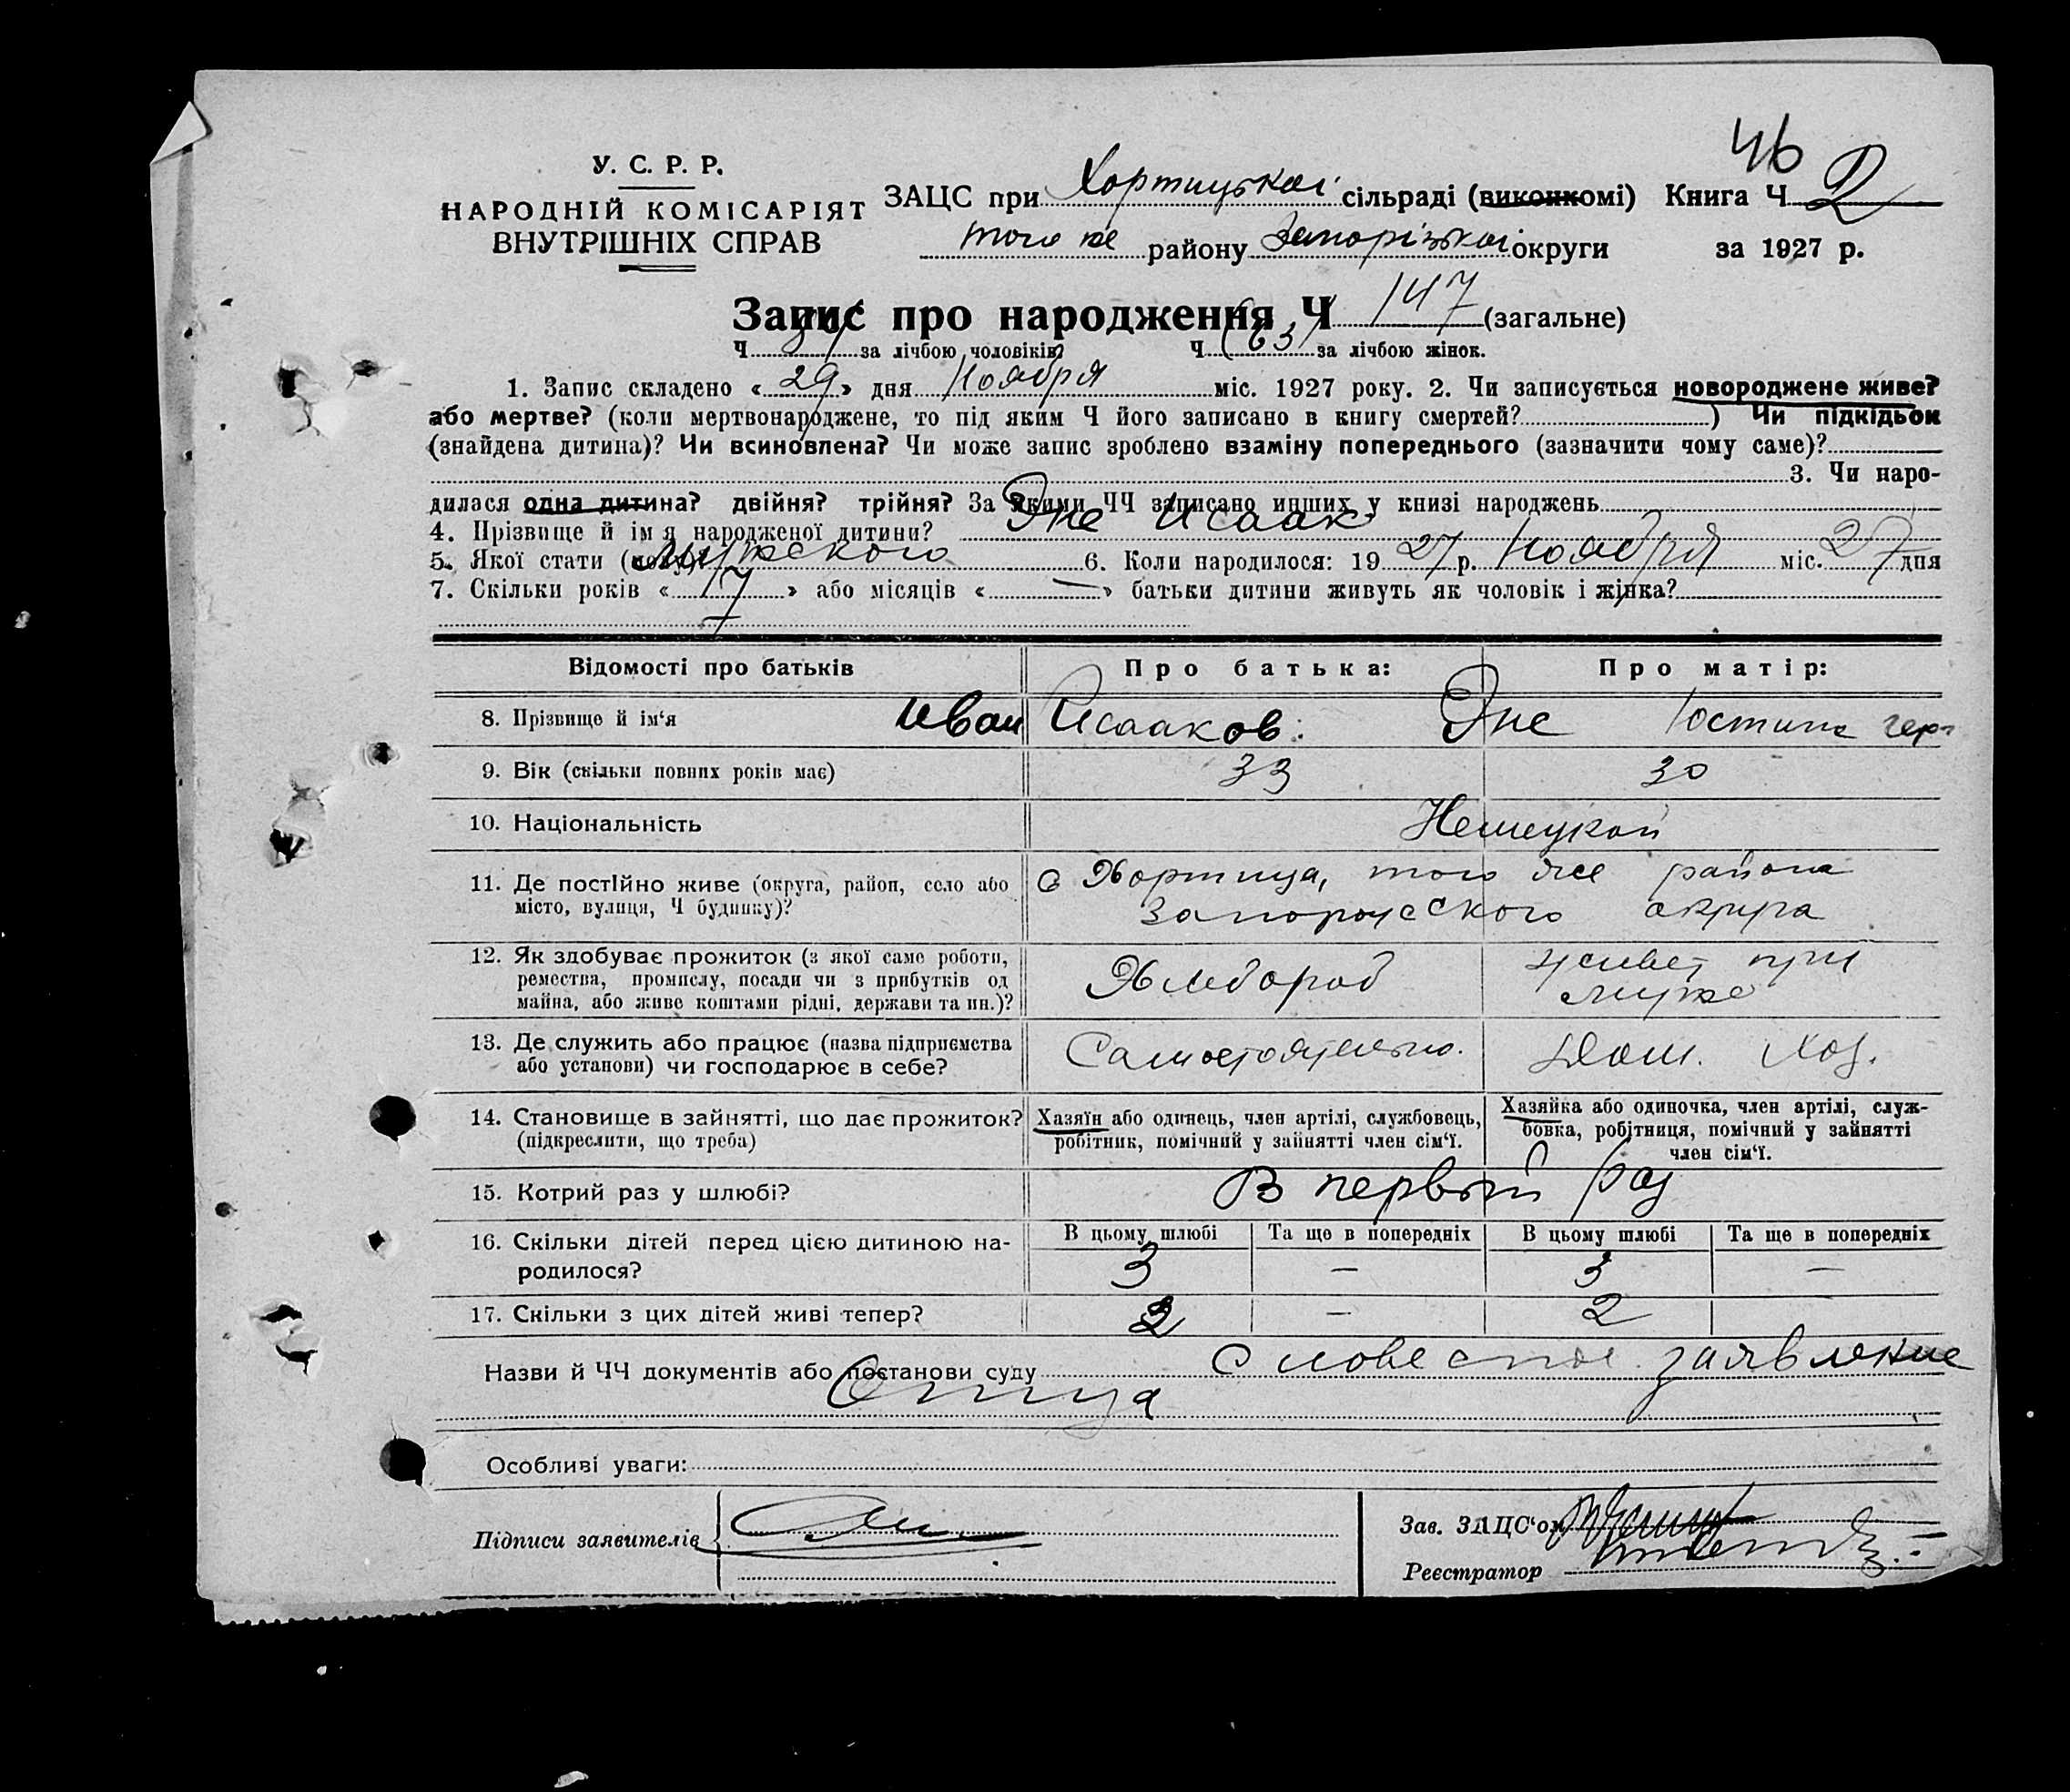 46
У. С. Р. Р.
НАРОДНІЙ КОМІСАРІЯТ
ВНУТРІШНІХ СПРАВ
ЗАЦС при Хортицькой сільраді (виконкомі) Книга Ч 2
того же району Запорізькой округи за 1927 р.
Запис про народження Ч 147 (загальне)
Ч 84 за лічбою чоловіків. Ч (63) за лічбою жінок.
1. Запис складено « 29 » дня Ноября міс. 1927 року. 2. Чи записується новороджене живе?
або мертве? (коли мертвонароджене, то під яким Ч його записано в книгу смертей? ) Чи підкідьок
(знайдена дитина)? Чи всиновлена? Чи може запис зроблено взаміну попереднього (зазначити чому саме)?
3. Чи наро-
дилася одна дитина? двійня? трійня? За якими ЧЧ записано инших у книзі народжень
4. Прізвище й ім я народженої дитини? Эне Исаак
5. Якої стати (полу)? мужского 6. Коли народилося: 19 27 р. Ноября міс. 27 дня
7. Скільки років « 7 » або місяців « — » батьки дитини живуть як чоловік і жінка?
Відомості про батьків Про батька: Про матір:
8. Прізвище й ім‘я Иван Исааков. Эне Юстина Гер
9. Вік (скільки повних років має) 33 30
10. Національність Немецкой
11. Де постійно живе (округа, район, село або С Хортица, того же района
місто, вулиця, Ч будинку)? Запорожского округа
12. Як здобуває прожиток (з якої саме роботи,
ремества, промислу, посади чи з прибутків од
майна, або живе коштами рідні, держави та ин.)? Хлебороб живет при
муже
13. Де служить або працює (назва підприємства
або установи) чи господарює в себе? Самостоятельно. Дом. Хоз.
14. Становище в зайнятті, що дає прожиток?
(підкреслити, що треба)
Хазяїн або одинець, член артілі, службовець,
робітник, помічний у зайнятті член сім‘ї.
Хазяйка або одиночка, член артілі, служ-
бовка, робітниця, помічний у зайнятті
член сім‘ї.
15. Котрий раз у шлюбі? В первый раз
16. Скільки дітей перед цією дитиною на-
родилося?
В цьому шлюбі Та ще в попередніх В цьому шлюбі Та ще в попередніх
3 — 3 —
17. Скільки з цих дітей живі тепер? 2 — 2
Назви й ЧЧ документів або постанови суду Словесное заявление
Отца
Особливі уваги:
Підписи заявителів
Зав. ЗАЦС‘ом
Реєстратор